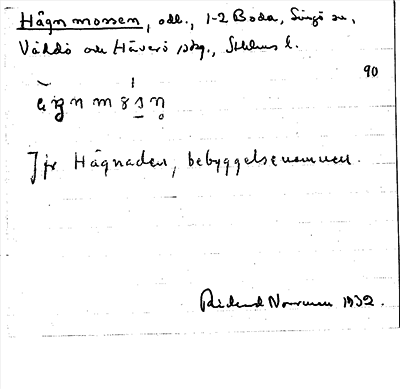 Hågnmossen, odl., 1-2 Boda, Singö sn,
Väddö och Häverö skg., Sthlms l.
90
Jfr Hågnaden, bebyggelsenamnen.
Rickard Norrman 1932.